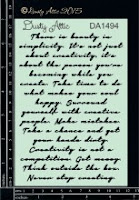 ©Dusty Attic 2015
Dusty Attic DA1494
There is beauty in
simplicity. It's not just
about creativity, it's
about the person you're
becoming while you
create. Take time to do
what makes your soul
happy. Surround
yourself with creative
people. Make mistakes.
Take a chance and get
your hands dirty.
Creativity is not
competition. Get messy.
Think outside the box.
Never stop creating.